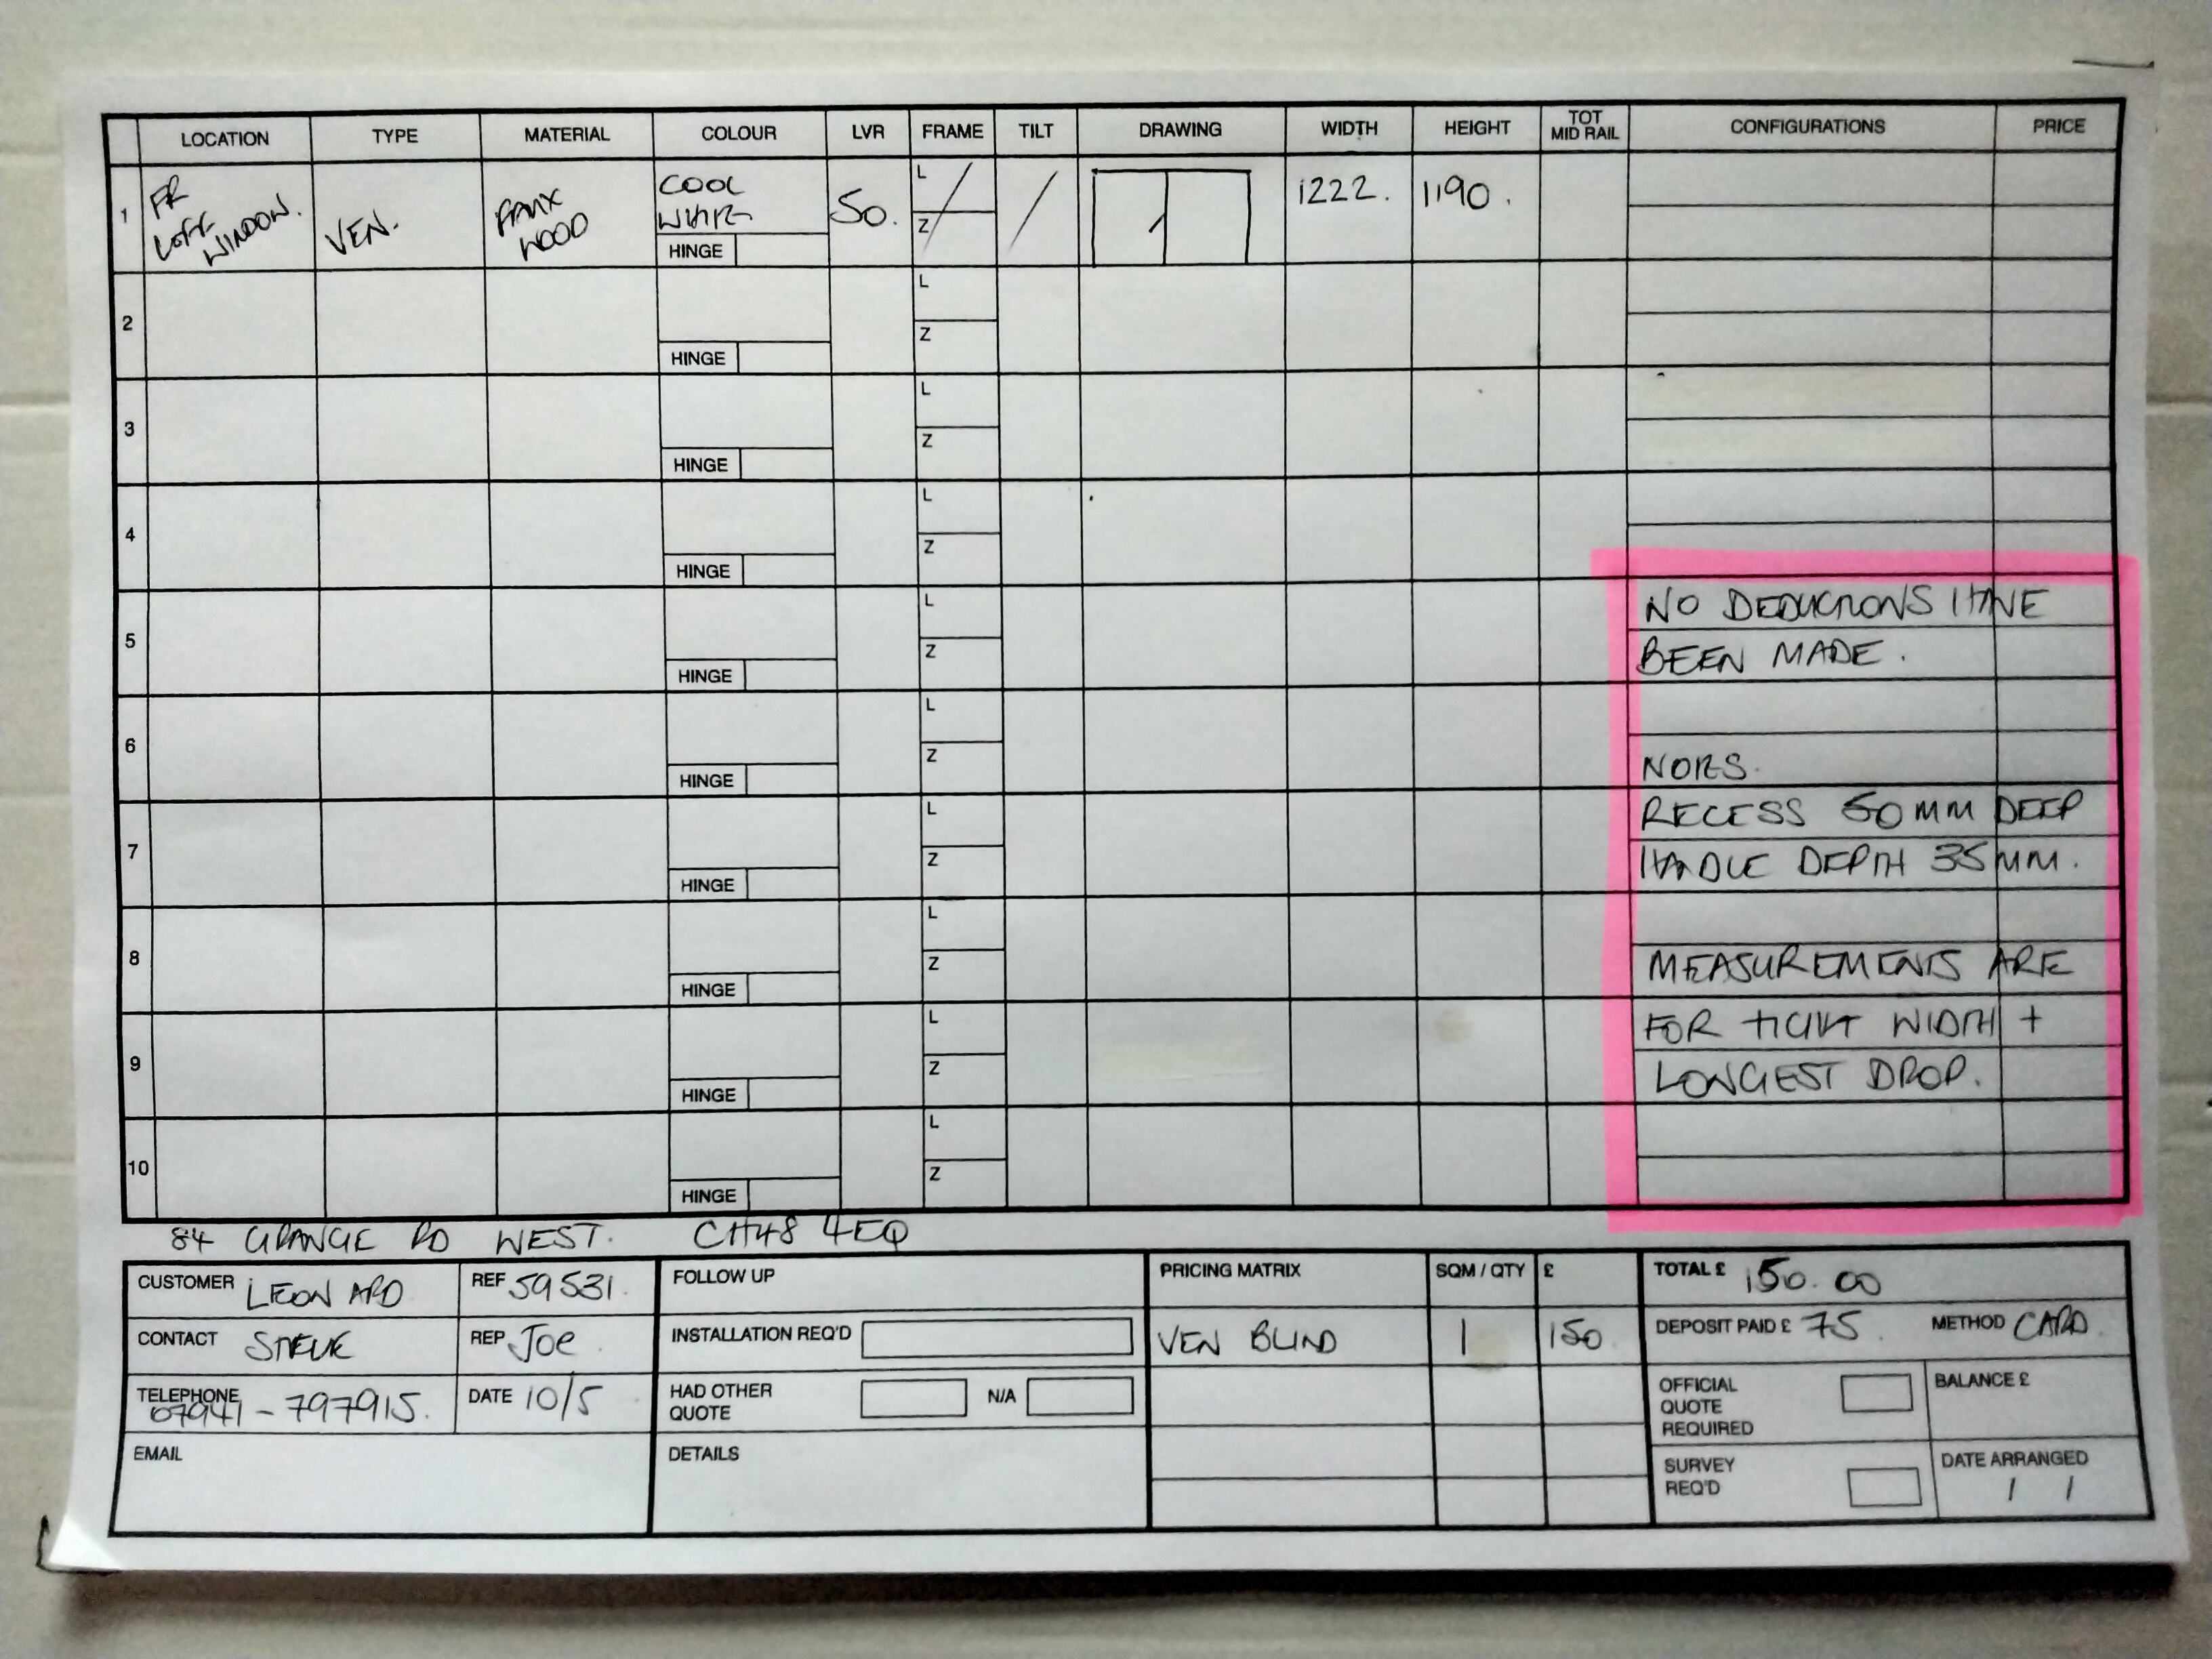 LOCATION TYPE MATERIAL COLOUR LVR FRAME TILT DRAWING WIDTH HEIGHT TOT MID RAIL CONFIGURATIONS PRICE
1 FR LOFT WINDOW. VEN. FAUX WOOD COOL WHITE HINGE 50. L Z 1222. 1190.
2 HINGE L Z
3 HINGE L Z
4 HINGE L Z
5 HINGE L Z
NO DEDUCTIONS HAVE
BEEN MADE.
6 HINGE L Z
NOTES.
7 HINGE L Z
RECESS 50MM DEEP
HANDLE DEPTH 35MM.
8 HINGE L Z
MEASUREMENTS ARE
9 HINGE L Z
FOR TIGHT WIDTH +
LONGEST DROP.
10 HINGE L Z
84 GRANGE RD WEST. CH48 4EQ
CUSTOMER LEONARD REF 59531.
CONTACT STEVE REP JOE.
TELEPHONE 07941-797915. DATE 10/5
EMAIL
FOLLOW UP
INSTALLATION REQ'D
HAD OTHER QUOTE N/A
DETAILS
PRICING MATRIX SQM / QTY £
VEN BLIND 1 150
TOTAL £ 150.00
DEPOSIT PAID £ 75. METHOD CARD.
OFFICIAL QUOTE REQUIRED BALANCE £
SURVEY REQ'D DATE ARRANGED
/ /